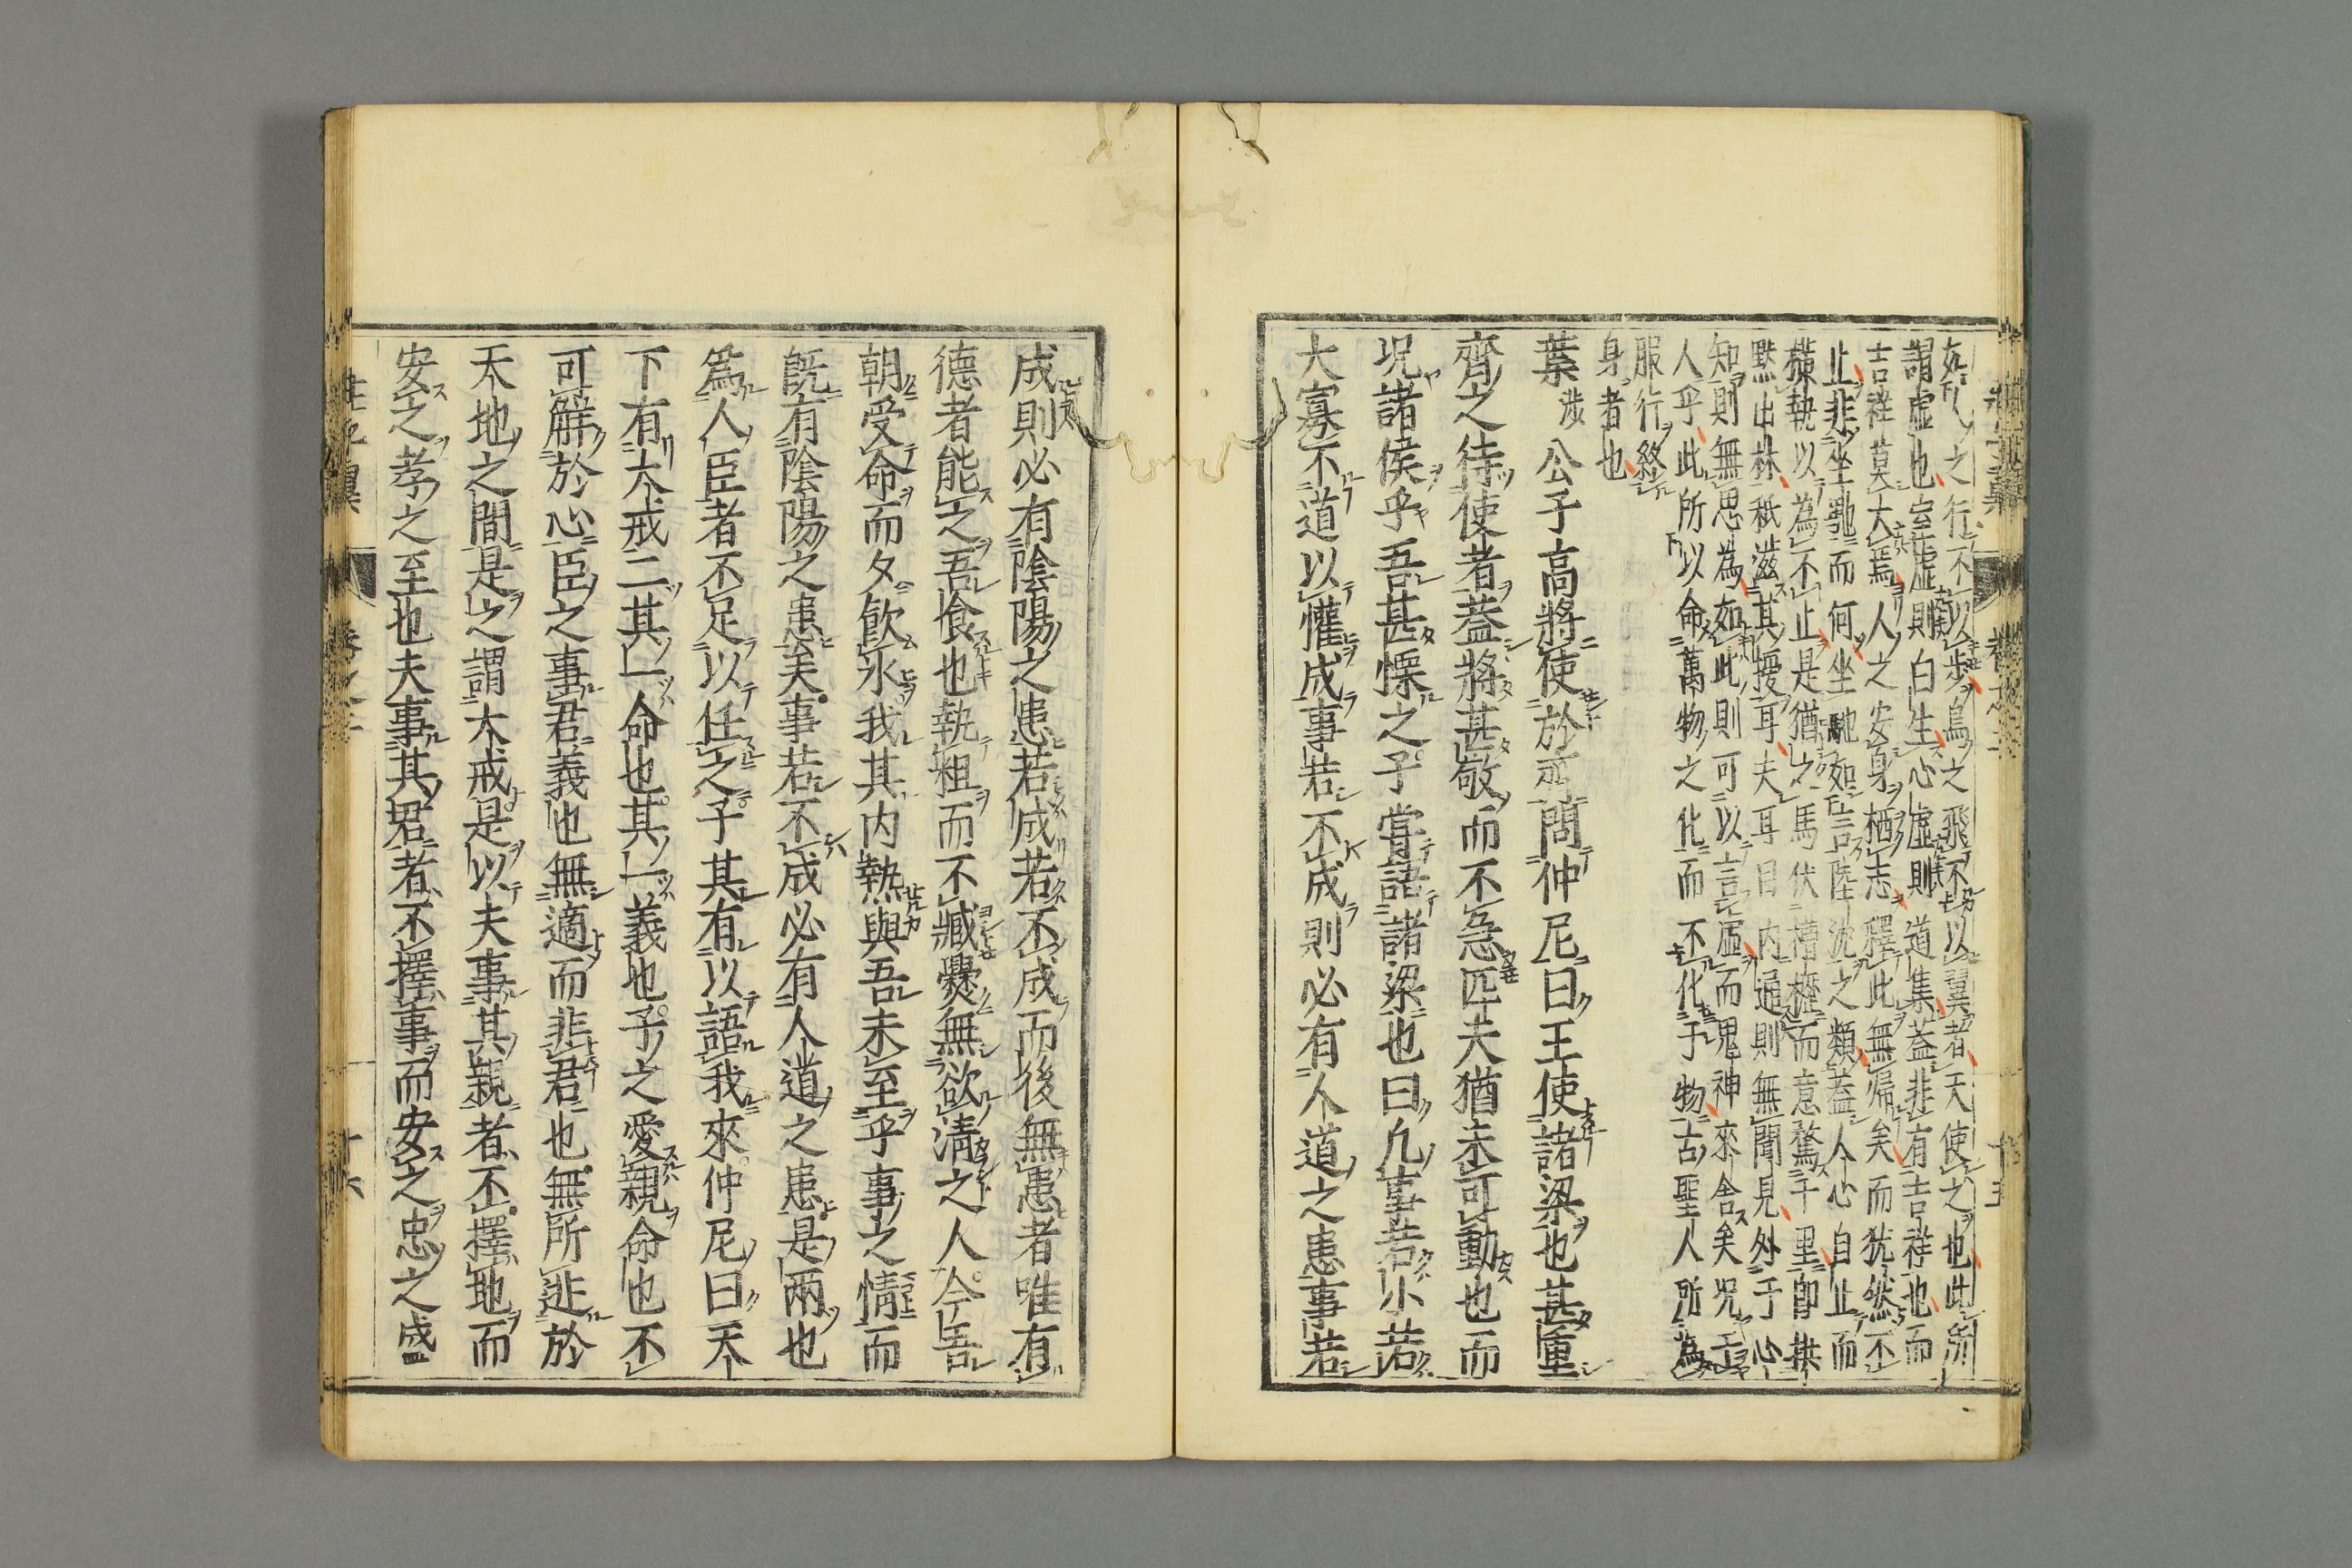 如人之行不以步鳥之飛不以翼者天使之也此所
謂虛也室虛則白生心虛則道集蓋非有吉祥也而
吉祥莫大焉人之安身栖志釋此無歸矣而犹然不
止非坐馳而何坐馳如言陸沈之類蓋人心自止而
橫執以為不止是猶之馬伏槽櫪而意騖千里即拱
默山林秪滋其擾耳夫耳目内通則無聞見外于心
知則無思為如此則可以言虛而鬼神來舍矣況于
人乎此所以命萬物之化而不化于物古聖人所為
服行終
身者也
葉涉公子高將使於齊問仲尼曰王使諸梁也甚重
齊之待使者蓋將甚敬而不急匹夫猶未可動也而
况諸侯乎吾甚慄之子嘗語諸梁也曰凡事若小若
大寡不道以懽成事若不成則必有人道之患事若
成則必有陰陽之患若成若不成而後無患者唯有
德者能之吾飡也執粗而不臧爨無欲清之人今吾
朝受命而夕飲冰我其内熱與吾未至乎事之情而
既有陰陽之患矣事若不成必有人道之患是兩也
爲人臣者不足以任之子其有以語我來仲尼曰天
下有大戒二其一命也其一義也子之愛親命也不
可解於心臣之事君義也無適而非君也無所逃於
天地之間是之謂大戒是以夫事其親者不擇地而
安之孝之至也夫事其君者不擇事而安之忠之盛
莊子翼 卷之二 十六